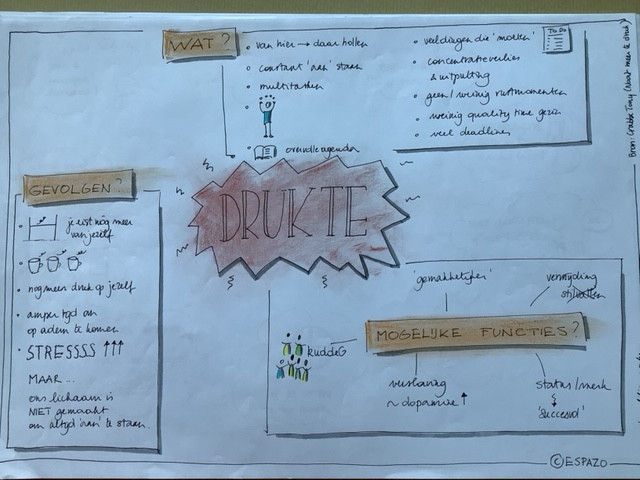 WAT?
van hier → daar hollen
constant 'aan' staan
multitasken
overvolle agenda
veel dingen die 'moeten'
TO DO
concentratieverlies
& uitputting
geen / weinig rustmomenten
weinig quality time gezin
veel deadlines
DRUKTE
GEVOLGEN?
je eist nóg meer
van jezelf
nog meer druk op jezelf
amper tijd om
op adem te komen
STRESSSS ↑↑↑
MAAR ...
ons lichaam is
NIET gemaakt
om altijd 'aan' te staan.
MOGELIJKE FUNCTIES?
'gemakkelijker'
vermijding
kudde
verslaving
~ dopamine ↑
status/merk
'succesvol'
©ESPAZO